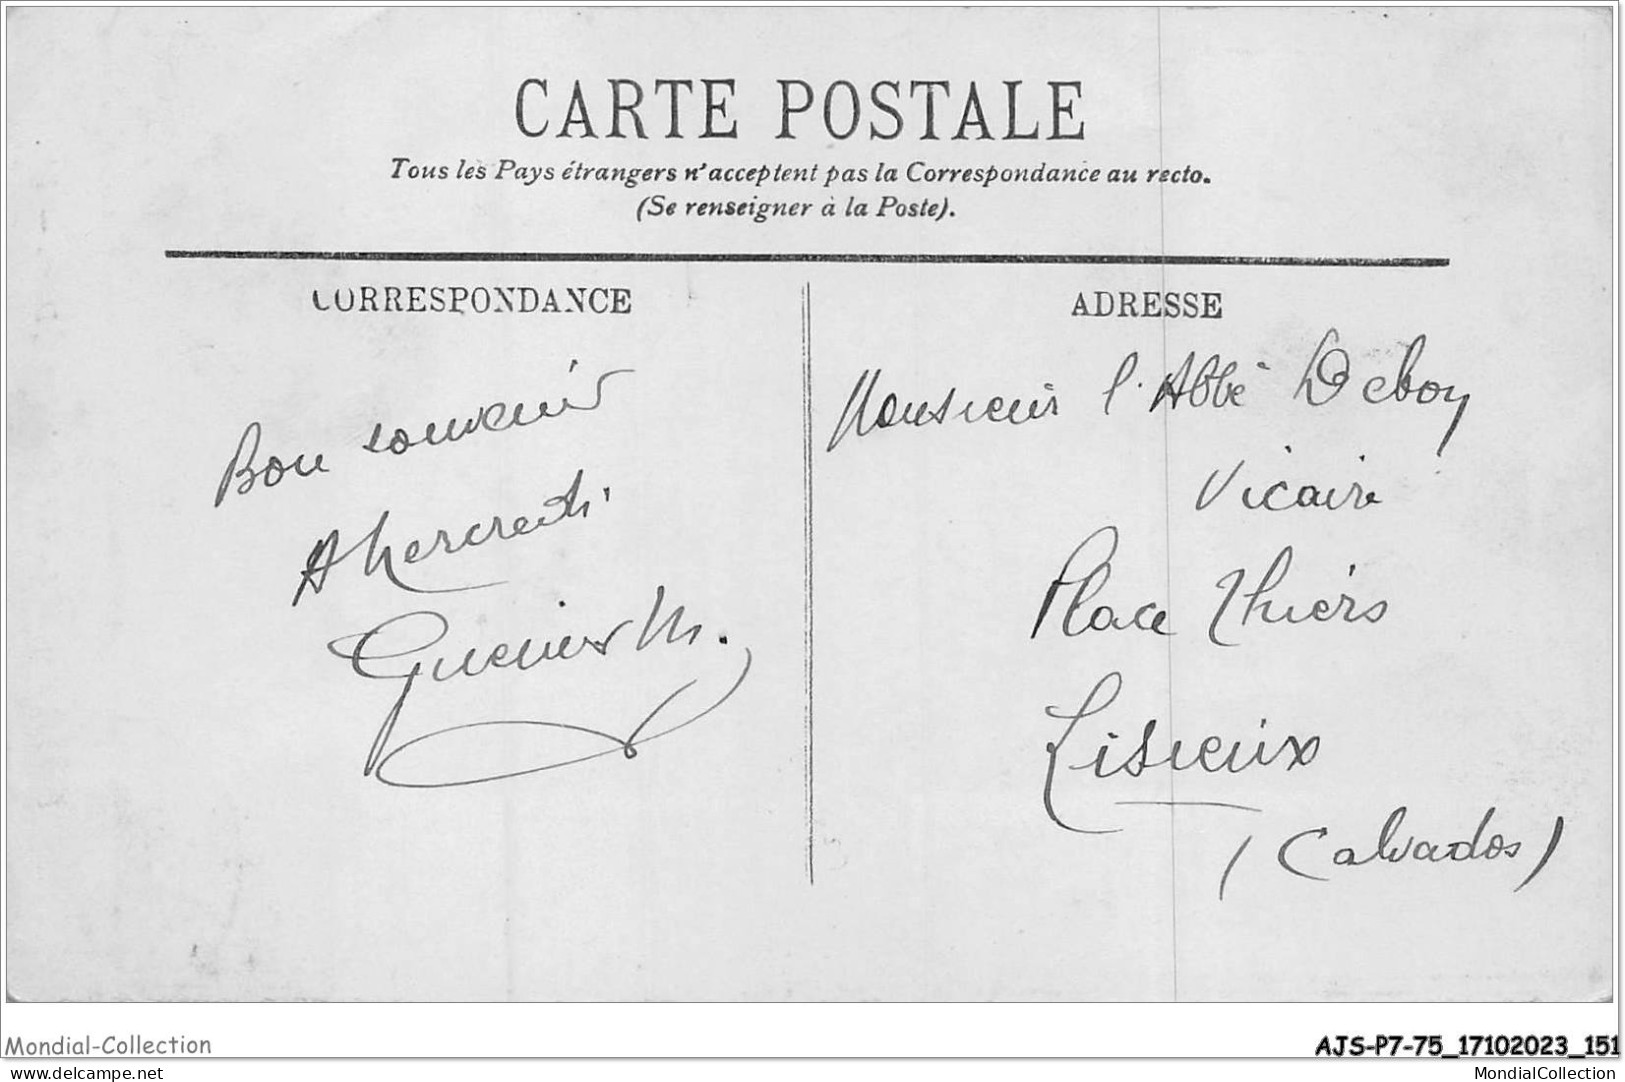 CARTE POSTALE
Tous les Pays étrangers n'acceptent pas la Correspondance au recto.
(Se renseigner à la Poste).
CORRESPONDANCE
ADRESSE
Bon souvenir
A Mercredi
M.
Monsieur l'Abbé Deboy
Vicaire
Place Thiers
Lisieux
(Calvados)
Mondial-Collection
AJS-P7-75_17102023_151
delcampe.net
MondialCollection